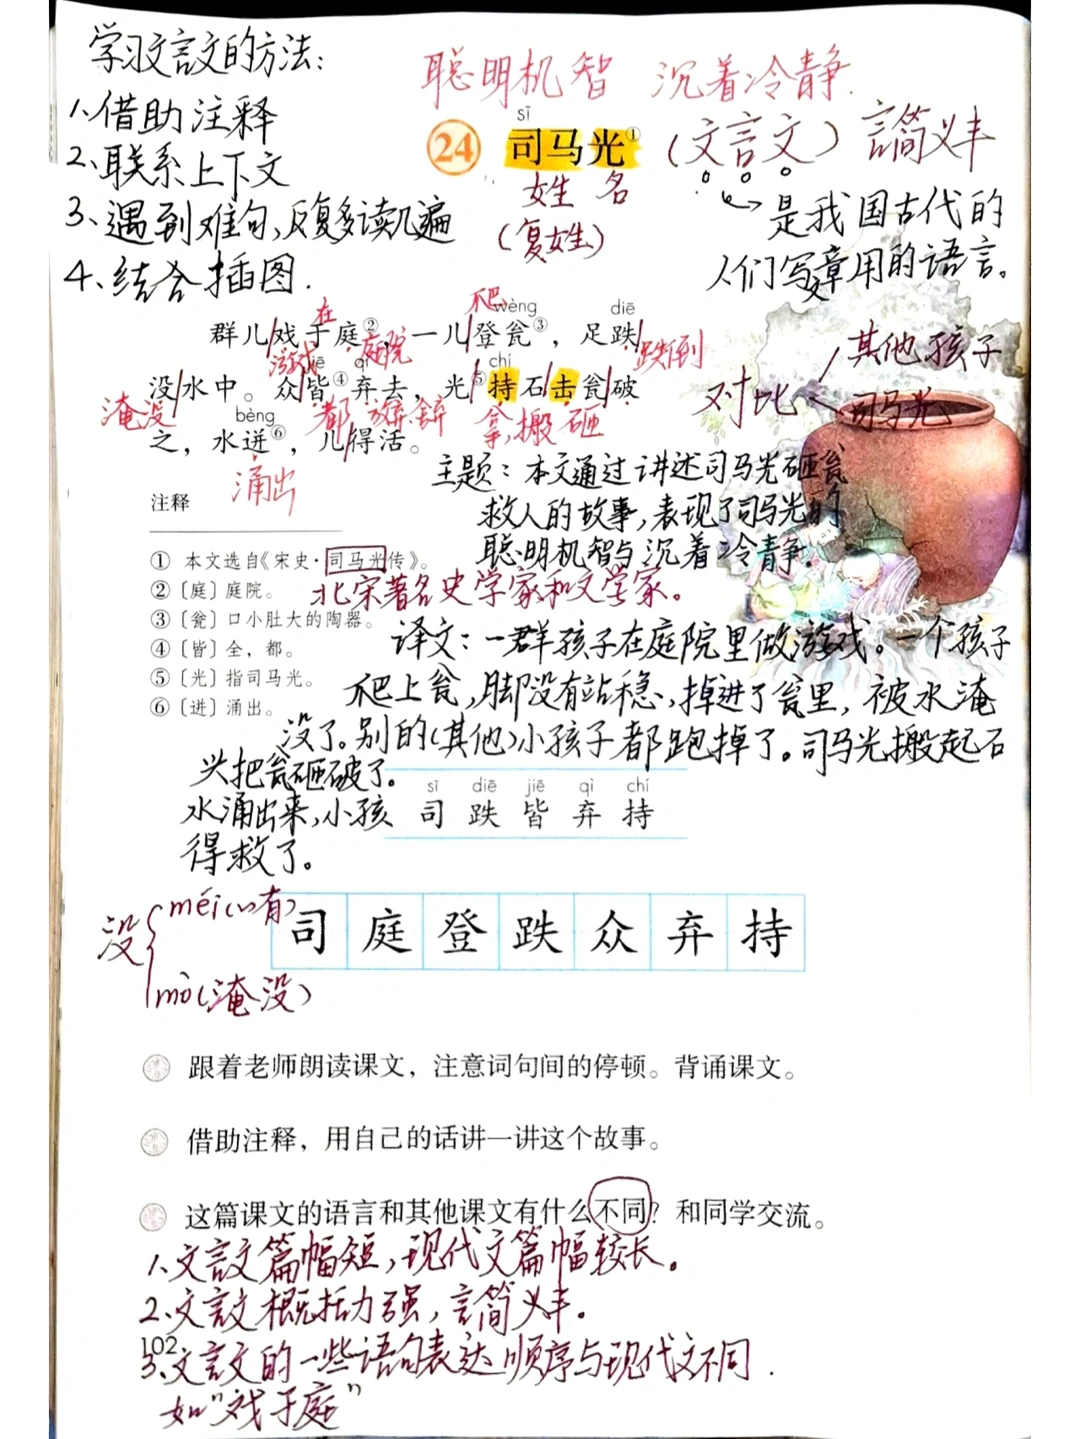 学习文言文的方法：
1、借助注释
2、联系上下文
3、遇到难句，反复多读几遍
4、结合插图.
聪明机智 沉着冷静.
sī
24 司马光① (文言文) 言简义丰
姓 名
(复姓)
是我国古代的
人们写文章用的语言。
在 爬 wèng diē
群儿戏于庭②，一儿登瓮③，足跌
游戏 庭院 跌倒
jiē qì chí
没水中。众皆④弃去，光⑤持石击瓮破
淹没 都 放弃 拿，搬 砸
bèng
之，水迸⑥，儿得活。
涌出
对比 其他孩子
司马光
主题：本文通过讲述司马光砸瓮
救人的故事，表现了司马光的
聪明机智与沉着冷静.
注释
① 本文选自《宋史·司马光传》。
北宋著名史学家和文学家。
② 〔庭〕庭院。
③ 〔瓮〕口小肚大的陶器。
④ 〔皆〕全，都。
⑤ 〔光〕指司马光。
⑥ 〔迸〕涌出。
译文：一群孩子在庭院里做游戏。一个孩子
爬上瓮，脚没有站稳，掉进了瓮里，被水淹
没了。别的(其他)小孩子都跑掉了。司马光搬起石
头把瓮砸破了。
水涌出来，小孩
得救了。
sī diē jiē qì chí
司 跌 皆 弃 持
没 méi(没有)
mò(淹没)
司 庭 登 跌 众 弃 持
跟着老师朗读课文，注意词句间的停顿。背诵课文。
借助注释，用自己的话讲一讲这个故事。
这篇课文的语言和其他课文有什么不同？和同学交流。
1、文言文篇幅短，现代文篇幅较长。
2、文言文概括力强，言简义丰。
102
3、文言文的一些语句表达顺序与现代文不同.
如"戏于庭"